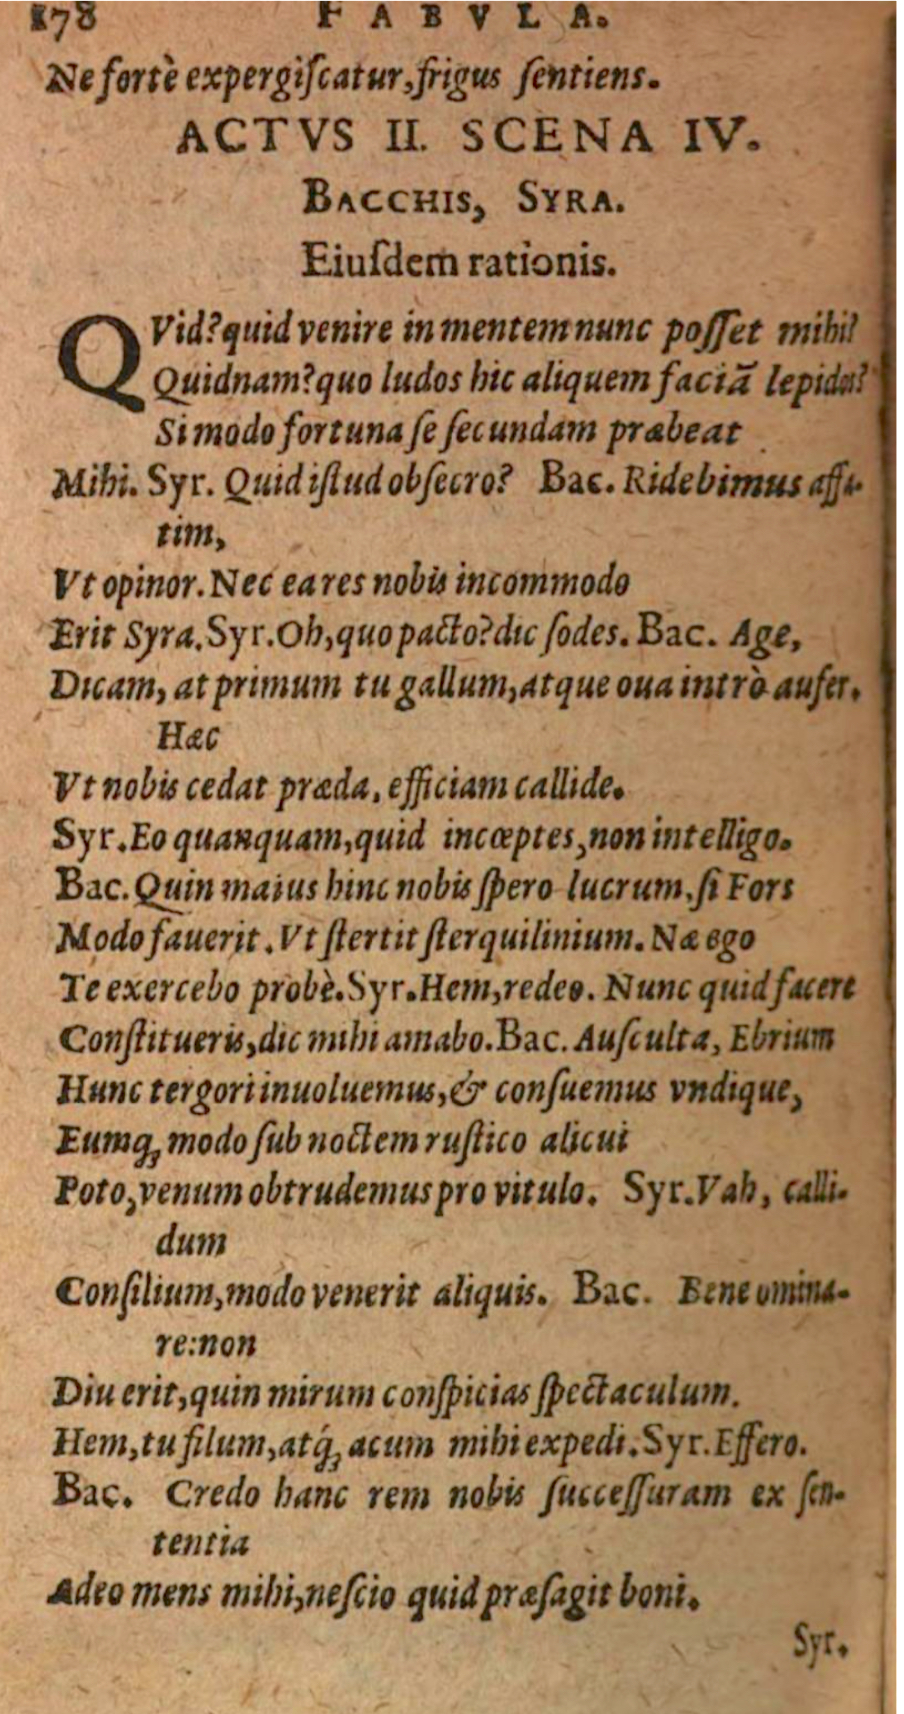 178 FABVLA.
Ne fortè expergiſcatur,frigus ſentiens.
ACTVS II. SCENA IV.
BACCHIS, SYRA.
Eiuſdem rationis.
QVid?quid venire in mentem nunc poſſet mihi?
Quidnam?quo ludos hic aliquem faciā lepidos?
Si modo fortuna ſe ſecundam præbeat
Mihi. Syr. Quid iſtud obſecro? Bac. Ridebimus affa-
tim,
Vt opinor. Nec ea res nobis incommodo
Erit Syra. Syr. Oh, quo pacto?dic ſodes. Bac. Age,
Dicam, at primum tu gallum,atque oua intrò aufer.
Hæc
Vt nobis cedat præda, efficiam callide.
Syr. Eo quanquam,quid incœptes,non intelligo.
Bac. Quin maius hinc nobis ſpero lucrum, ſi Fors
Modo fauerit. Vt ſtertit ſterquilinium. Næ ego
Te exercebo probè. Syr. Hem, redeo. Nunc quid facere
Conſtitueris,dic mihi amabo. Bac. Auſculta, Ebrium
Hunc tergori inuoluemus,& conſuemus vndique,
Eumq; modo ſub noctem ruſtico alicui
Poto,venum obtrudemus pro vitulo. Syr. Vah, calli-
dum
Conſilium,modo venerit aliquis. Bac. Bene omina-
re:non
Diu erit,quin mirum conſpicias ſpectaculum.
Hem,tu filum,atq́; acum mihi expedi. Syr. Effero.
Bac. Credo hanc rem nobis ſucceſſuram ex ſen-
tentia
Adeo mens mihi,neſcio quid præſagit boni.
Syr.